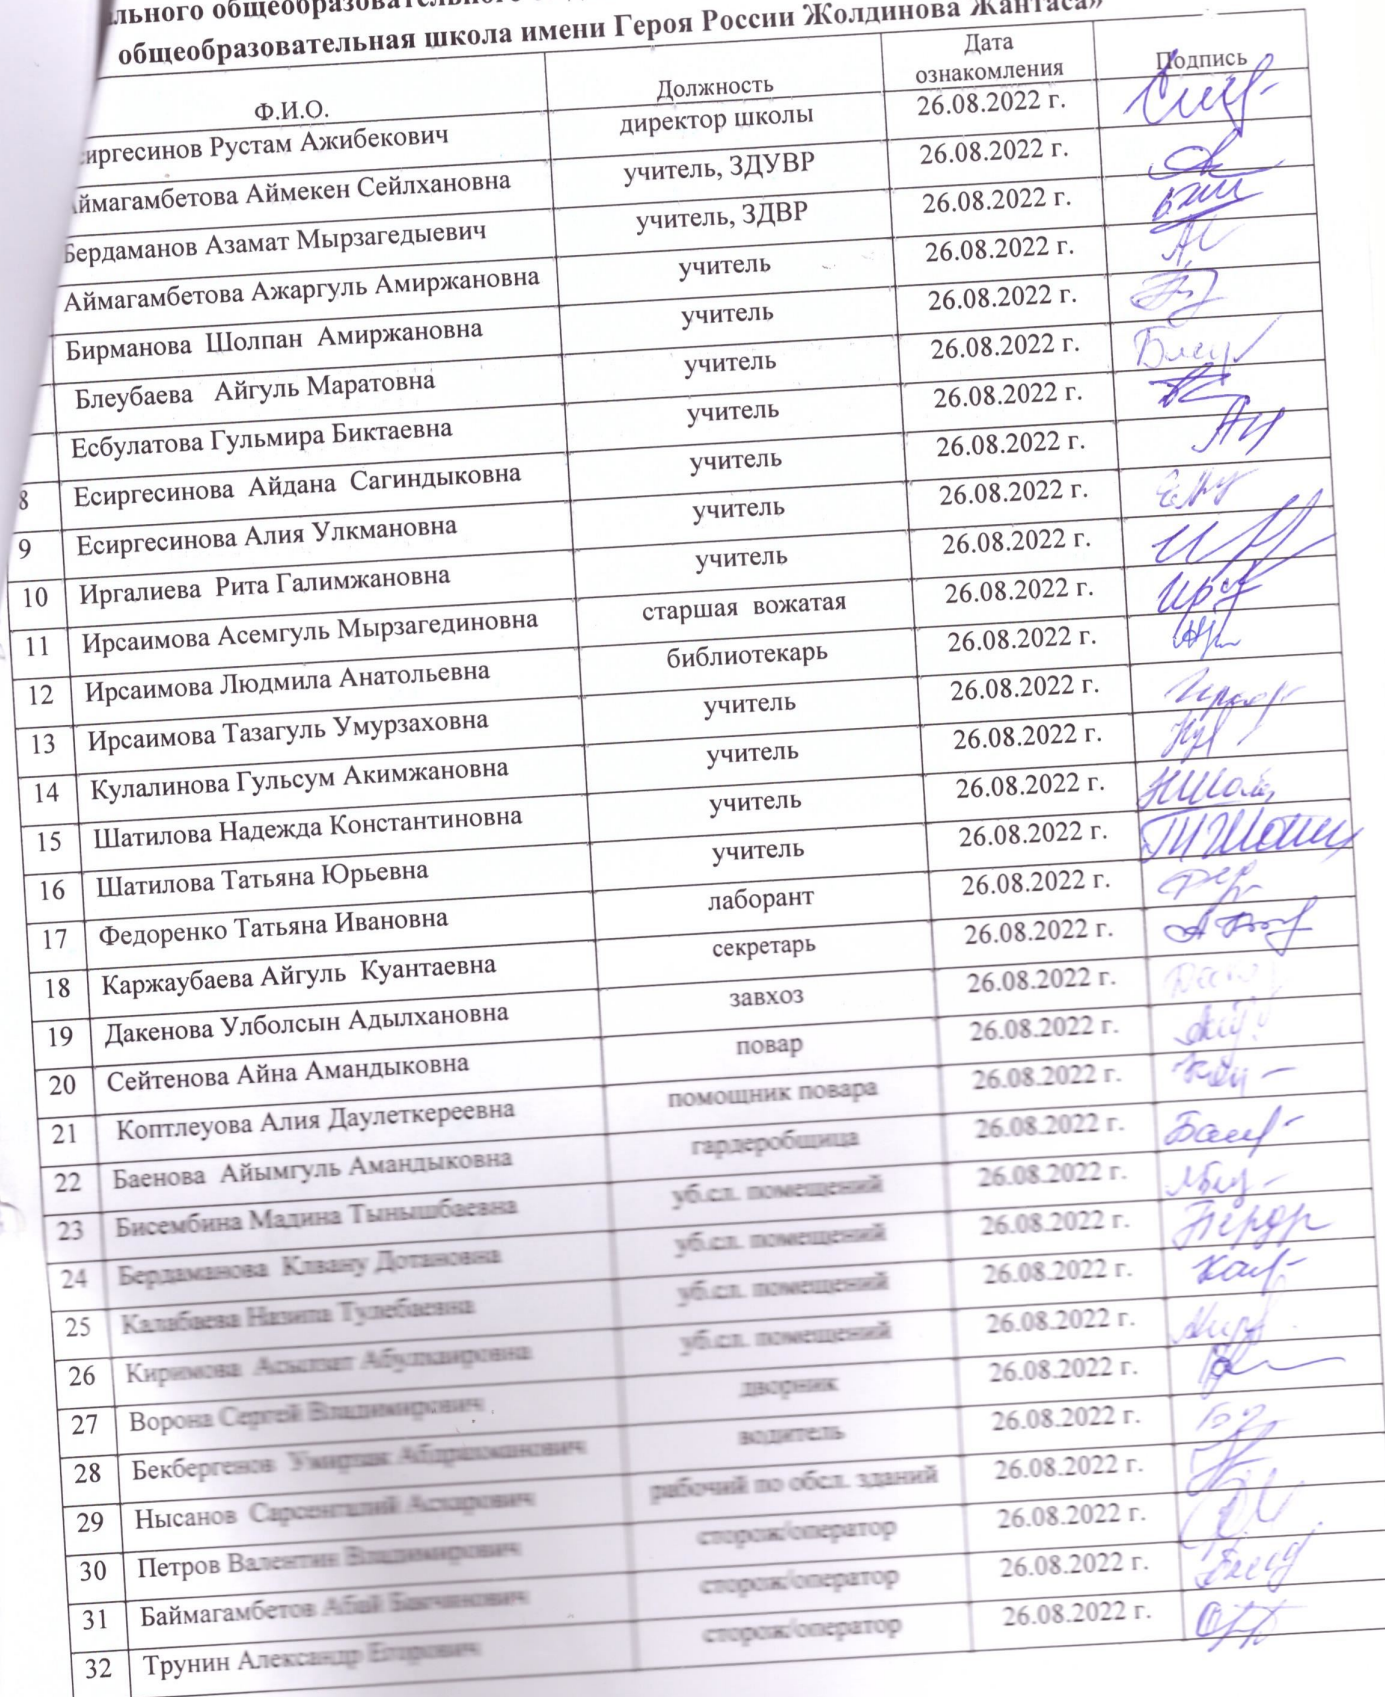 общеобразовательная школа имени Героя России Жолдинова Жантаса»
Ф.И.О. Должность Дата ознакомления Подпись
Рустам Ажибекович директор школы 26.08.2022 г.
Аймагамбетова Аймекен Сейлхановна учитель, ЗДУВР 26.08.2022 г.
Бердаманов Азамат Мырзагедыевич учитель, ЗДВР 26.08.2022 г.
Аймагамбетова Ажаргуль Амиржановна учитель 26.08.2022 г.
Бирманова Шолпан Амиржановна учитель 26.08.2022 г.
Блеубаева Айгуль Маратовна учитель 26.08.2022 г.
Есбулатова Гульмира Биктаевна учитель 26.08.2022 г.
8 Есиргесинова Айдана Сагиндыковна учитель 26.08.2022 г.
9 Есиргесинова Алия Улкмановна учитель 26.08.2022 г.
10 Иргалиева Рита Галимжановна учитель 26.08.2022 г.
11 Ирсаимова Асемгуль Мырзагединовна старшая вожатая 26.08.2022 г.
12 Ирсаимова Людмила Анатольевна библиотекарь 26.08.2022 г.
13 Ирсаимова Тазагуль Умурзаховна учитель 26.08.2022 г.
14 Кулалинова Гульсум Акимжановна учитель 26.08.2022 г.
15 Шатилова Надежда Константиновна учитель 26.08.2022 г.
16 Шатилова Татьяна Юрьевна учитель 26.08.2022 г.
17 Федоренко Татьяна Ивановна лаборант 26.08.2022 г.
18 Каржаубаева Айгуль Куантаевна секретарь 26.08.2022 г.
19 Дакенова Улболсын Адылхановна завхоз 26.08.2022 г.
20 Сейтенова Айна Амандыковна повар 26.08.2022 г.
21 Коптлеуова Алия Даулеткереевна помощник повара 26.08.2022 г.
22 Баенова Айымгуль Амандыковна гардеробщица 26.08.2022 г.
23 Бисембина Мадина Тынышбаевна уб.сл. помещений 26.08.2022 г.
24 Бердаманова Клвану Дотановна уб.сл. помещений 26.08.2022 г.
25 Калабаева Назипа Тулебаевна уб.сл. помещений 26.08.2022 г.
26 Киримова уб.сл. помещений 26.08.2022 г.
27 Ворона Сергей Владимирович дворник 26.08.2022 г.
28 Бекбергенов водитель 26.08.2022 г.
29 Нысанов рабочий по обсл. зданий 26.08.2022 г.
30 Петров Валентин Владимирович сторож/оператор 26.08.2022 г.
31 Баймагамбетов сторож/оператор 26.08.2022 г.
32 Трунин Александр Егорович сторож/оператор 26.08.2022 г.